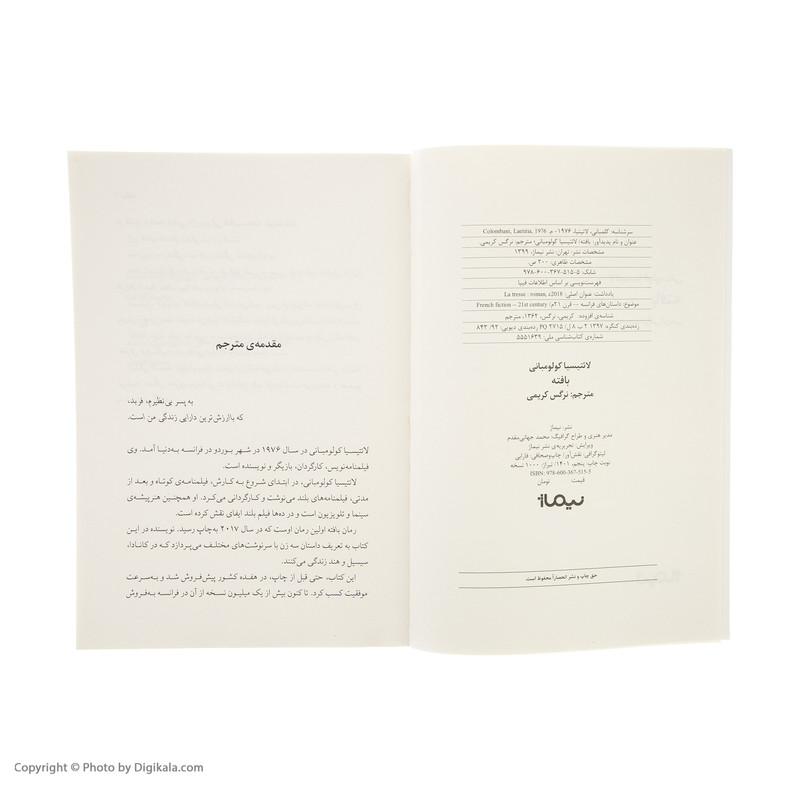 سرشناسه: کلمبانی، لائیتیتیا، ۱۹۷۶- م. Colombani, Laetitia, 1976
عنوان و نام پدیدآور: بافته/ لائتیسیا کولومبانی؛ مترجم: نرگس کریمی.
مشخصات نشر: تهران: نشر نیماژ، ۱۳۹۹
مشخصات ظاهری: ۲۰۰ ص.
شابک: ۵-۵۱۵-۳۶۷-۶۰۰-۹۷۸
فهرست‌نویسی بر اساس اطلاعات فیپا
یادداشت: عنوان اصلی: La tresse : roman, c2018
موضوع: داستان‌های فرانسه -- قرن ۲۱م/ French fiction -- 21st century
شناسه‌ی افزوده: کریمی، نرگس، ۱۳۶۲، مترجم
رده‌بندی کنگره: ۱۳۹۷ ۲ ب ۸ ل/ PQ ۲۷۱۵ رده‌بندی دیویی: ۹۲/ ۸۴۳
شماره‌ی کتاب‌شناسی ملی: ۵۵۵۱۶۳۹
لائتیسیا کولومبانی
بافته
مترجم: نرگس کریمی
نشر: نیماژ
مدیر هنری و طراح گرافیک: محمد جهانی‌مقدم
ویرایش: تحریریه‌ی نشر نیماژ
لیتوگرافی: نقش‌آور/ چاپ‌وصحافی: فارابی
نوبت چاپ: پنجم، ۱۴۰۱/ تیراژ: ۱۰۰۰ نسخه
ISBN: 978-600-367-515-5
قیمت تومان
نیماژ
حق چاپ و نشر انحصاراً محفوظ است
مقدمه‌ی مترجم
به پسر بی‌نظیرم، فربد،
که باارزش‌ترین دارایی زندگی من است.
لائتیسیا کولومبانی در سال ۱۹۷۶ در شهر بوردو در فرانسه به‌دنیا آمد. وی
فیلمنامه‌نویس، کارگردان، بازیگر و نویسنده است.
لائتیسیا کولومبانی، در ابتدای شروع به کارش، فیلمنامه‌ی کوتاه و بعد از
مدتی، فیلمنامه‌های بلند می‌نوشت و کارگردانی می‌کرد. او همچنین هنرپیشه‌ی
سینما و تلویزیون است و در ده‌ها فیلم بلند ایفای نقش کرده است.
رمان بافته اولین رمان اوست که در سال ۲۰۱۷ به‌چاپ رسید. نویسنده در این
کتاب به تعریف داستان سه زن با سرنوشت‌های مختلف می‌پردازد که در کانادا،
سیسیل و هند زندگی می‌کنند.
این کتاب، حتی قبل از چاپ، در هفده کشور پیش‌فروش شد و به‌سرعت
موفقیت کسب کرد. تا کنون بیش از یک میلیون نسخه از آن در فرانسه به‌فروش
Copyright © Photo by Digikala.com